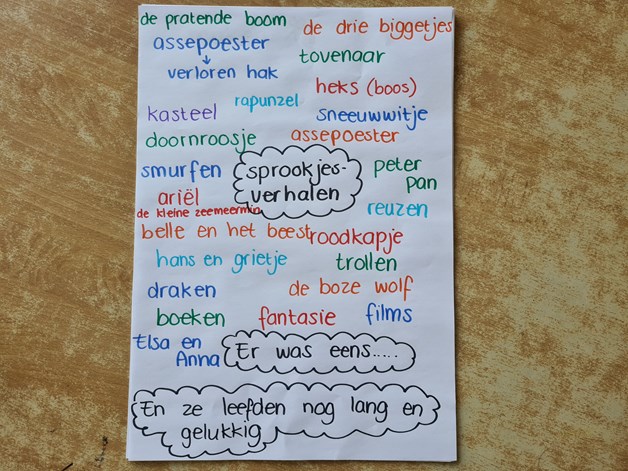 de pratende boom
de drie biggetjes
assepoester
tovenaar
verloren hak
heks (boos)
rapunzel
kasteel
sneeuwwitje
doornroosje
assepoester
smurfen
sprookjes-
verhalen
peter
pan
ariël
de kleine zeemeermin
reuzen
belle en het beest
roodkapje
hans en grietje
trollen
draken
de boze wolf
boeken
fantasie
films
Elsa en
Anna
Er was eens.....
En ze leefden nog lang en
gelukkig